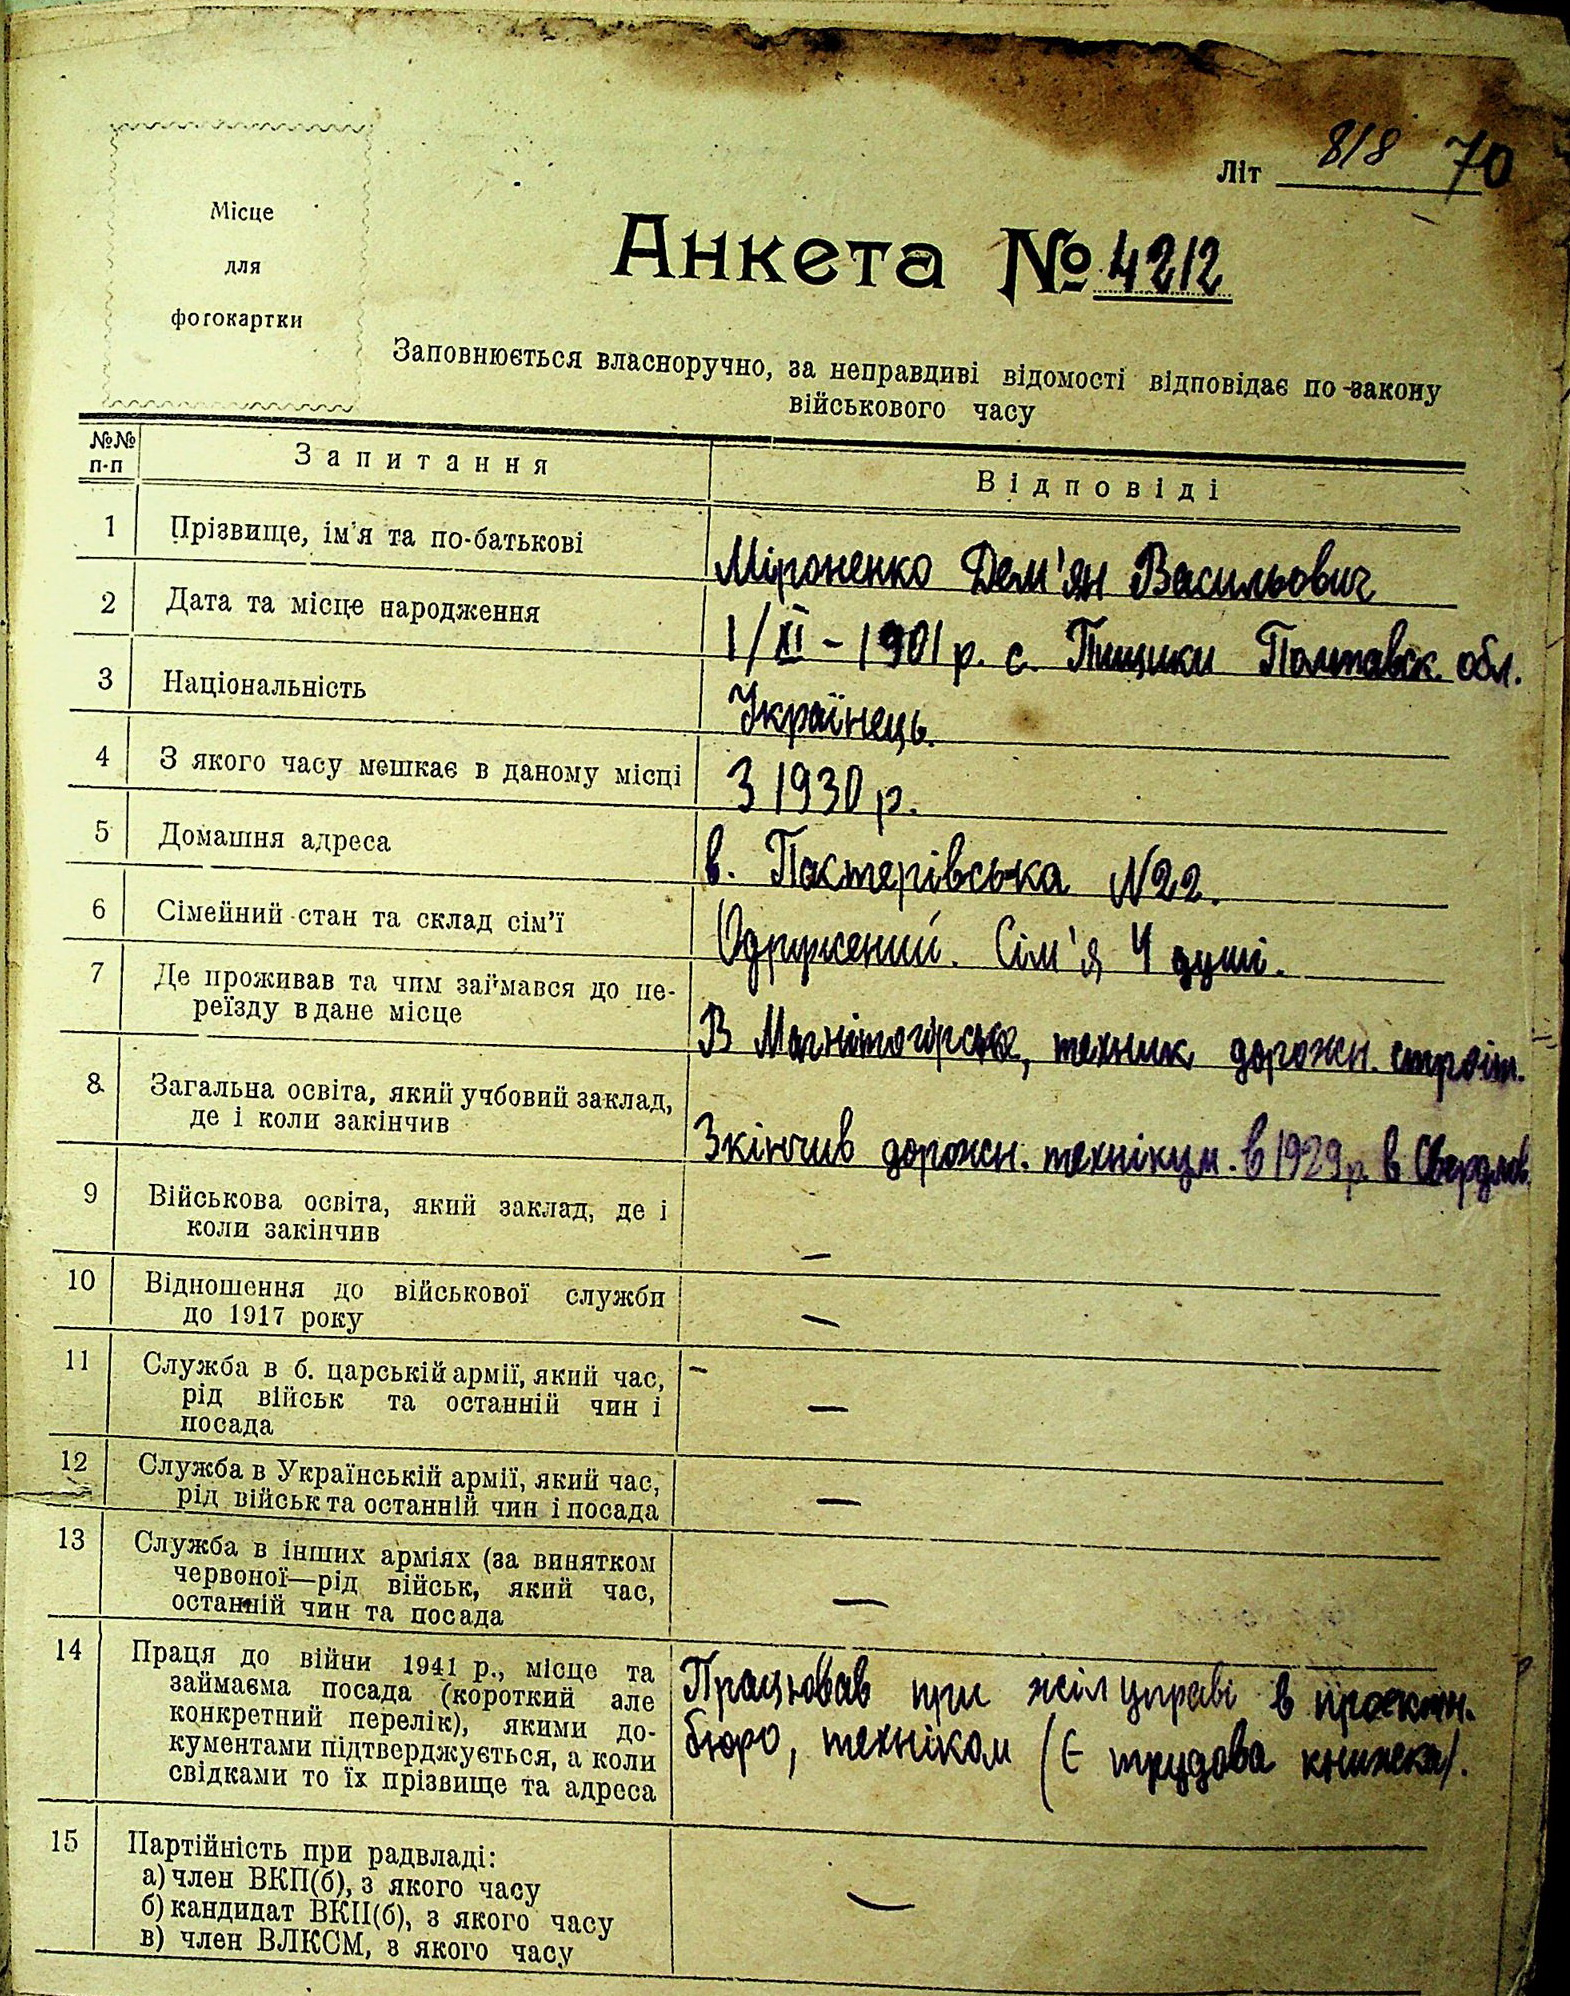 Літ 818 70
Місце
для
фотокартки
Анкета № 4212
Заповнюється власноручно, за неправдиві відомості відповідає по закону
військового часу
№№ п-п Запитання Відповіді
1 Прізвище, ім'я та по-батькові Міроненко Дем'ян Васильович
2 Дата та місце народження 1/XI - 1901 р. с. Пищики Полтавськ. обл.
3 Національність Українець.
4 З якого часу мешкає в даному місці З 1930 р.
5 Домашня адреса в. Пастерівська N22.
6 Сімейний стан та склад сім'ї Одружений. Сім'я 4 душі.
7 Де проживав та чим займався до пе-
реїзду в дане місце В Магнітогорське, технік дорожн. строіт.
8 Загальна освіта, який учбовий заклад,
де і коли закінчив Зкінчив дорожн. технікум. в 1929 р. в Свердлов.
9 Військова освіта, який заклад, де і
коли закінчив —
10 Відношення до військової служби
до 1917 року —
11 Служба в б. царській армії, який час, –
рід військ та останній чин і —
посада
12 Служба в Українській армії, який час,
рід військ та останній чин і посада —
13 Служба в інших арміях (за винятком
червоної—рід військ, який час,
останній чин та посада —
14 Праця до війни 1941 р., місце та Працював при жіл управі в проектн.
займаєма посада (короткий але
конкретний перелік), якими до- бюро, техніком (Є трудова книжка).
кументами підтверджується, а коли
свідками то їх прізвище та адреса
15 Партійність при радвладі:
а) член ВКП(б), з якого часу —
б) кандидат ВКП(б), з якого часу
в) член ВЛКСМ, з якого часу